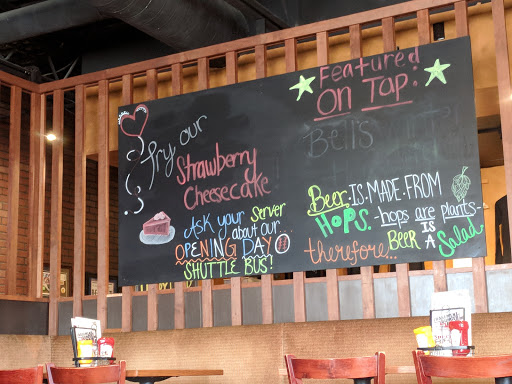 Try our
Strawberry
Cheesecake
Ask your server
about our
OPENING DAY
SHUTTLE BUS!
Featured
on Tap:
Bell's
Beer IS MADE FROM
HOPS. hops are plants
therefore... BEER IS A Salad